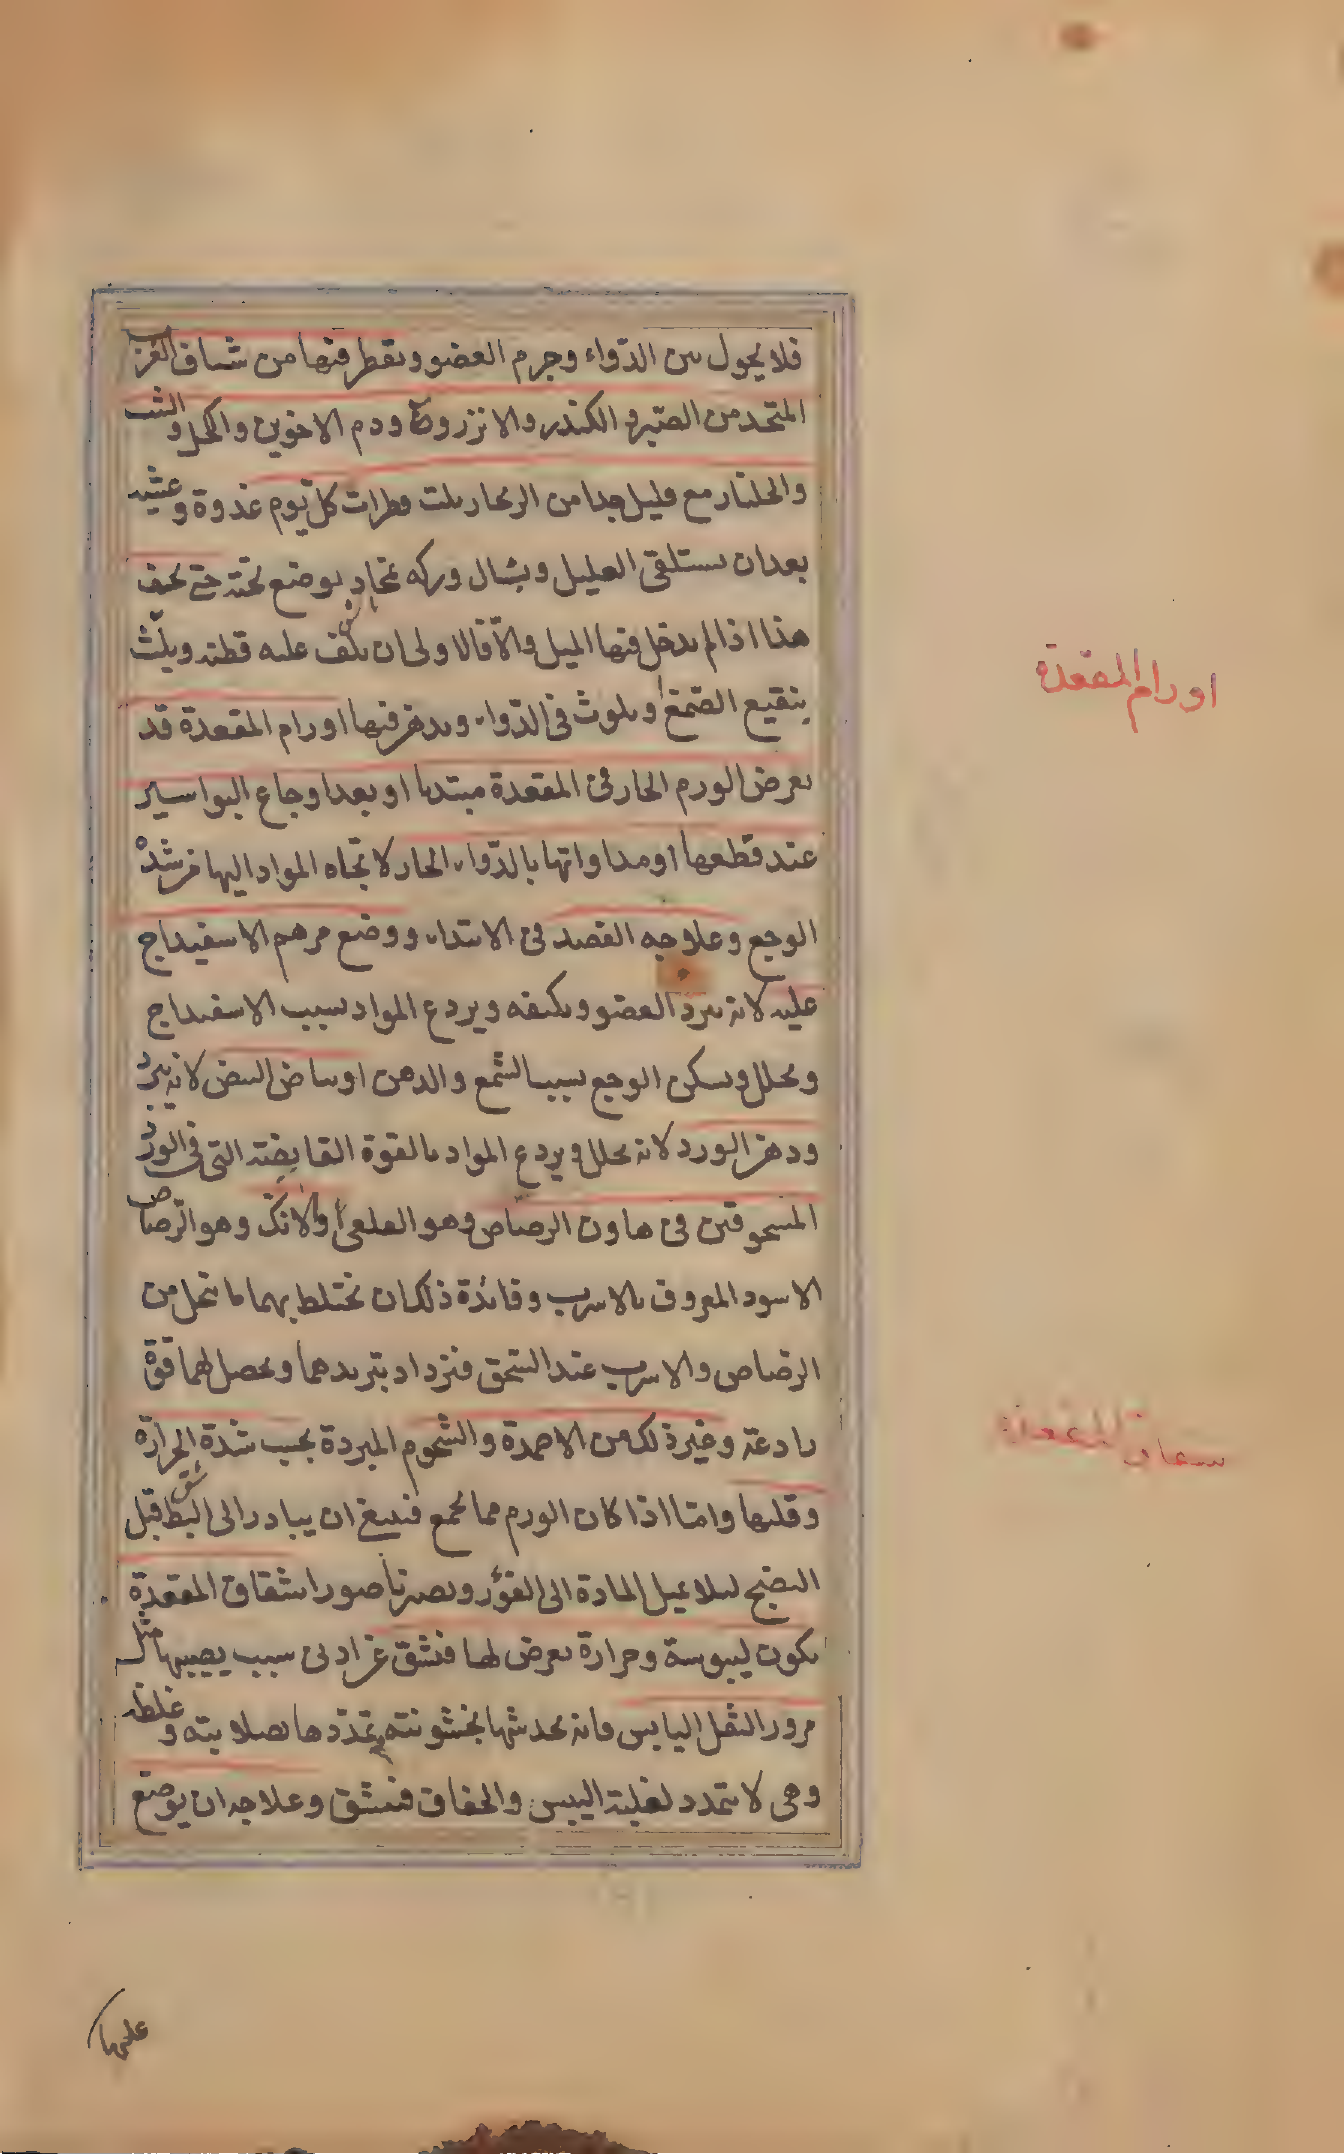 فلا يحول بين الدّواء وجرم العضو ويقطر فيها من شياف الغرب
المتخذ من الصّبر و الكندر والانزروت ودم الاخوين والكحل والشب
والجلنار مع قليل جدا من الزنجار ثلث قطرات كل يوم غدوة وعشيه
بعد ان يستلقى العليل ويشال وركه بمخاد يوضع تحته حتى يجف
هذا اذا لم يدخل فيها الميل والّا فالاولى ان يلف عليه قطنه ويلّث
بنقيع الصّمغ ويلوث فى الدّواء ويدهن فيها اورام المقعدة قد
يعرض الورم الحار فى المقعدة مبتدءا او بعد اوجاع البواسير
عند قطعها او مداواتها بالدّواء الحار لاتجاه المواد اليها من شدّة
الوجع وعلاجه الفصد فى الابتداء ووضع مرهم الاسفيداج
عليه لانه يبرّد العضو ويكثفه ويردع المواد بسبب الاسفيداج
ويحلل ويسكن الوجع بسبب الشّمع والدهن او بياض البيض لانه يبرّد
ودهن الورد لانه يحلل ويردع المواد بالقوة القابضة التى فى الورد
المسحوقين فى هاون الرصاص وهو القلعى او الانك وهو الرّصاص
الاسود المعروف بالاسرب وفائدة ذلك ان يختلط بهما ما ينحل من
الرصاص والاسرب عند السّحق فيزداد تبريدهما ويحصل لهما قوّة
رادعة وغير ذلك من الاضمدة والشحوم المبردة بحسب شدة الحرارة
وقلتها وامّا اذا كان الورم مما يجمع فينبغى ان يبادر الى البط شق قبل
النضج لئلا يميل المادة الى الغور ويصير ناصورا شقاق المقعدة
يكون ليبوسة وحرارة يعرض لها فينشق عن ادنى سبب يصيبها مثل
مرور الثفل اليابس فانه يخدشها بخشونته ويمدّدها بصلابته وغلظه
وهى لا يتمدد لغلبة اليبس والجفاف فينشق وعلاجه ان يوضع
عليها
اورام المقعدة
شقاق المقعدة